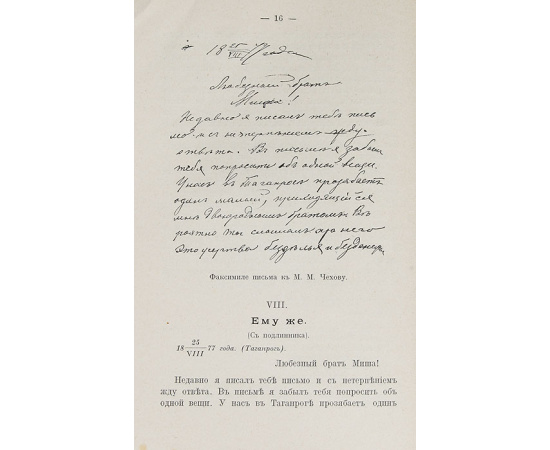 — 16 —
18 25/VIII 77 года
Любезный братъ
Миша!
Недавно я писалъ тебѣ пись
мо и съ нетерпѣніемъ жду
отвѣта. Въ письмѣ я забылъ
тебя попросить объ одной вещи.
У насъ въ Таганрогѣ прозябаетъ
одинъ малый, приходящійся
мнѣ двоюроднымъ братомъ. Вѣ
роятно ты слышалъ про него
Это
Факсимиле письма къ М. М. Чехову.
VIII.
Ему же.
(Съ подлинника).
18 25/VIII 77 года. (Таганрогъ).
Любезный братъ Миша!
Недавно я писалъ тебѣ письмо и съ нетерпѣніемъ
жду отвѣта. Въ письмѣ я забылъ тебя попросить объ
одной вещи. У насъ въ Таганрогѣ прозябаетъ одинъ